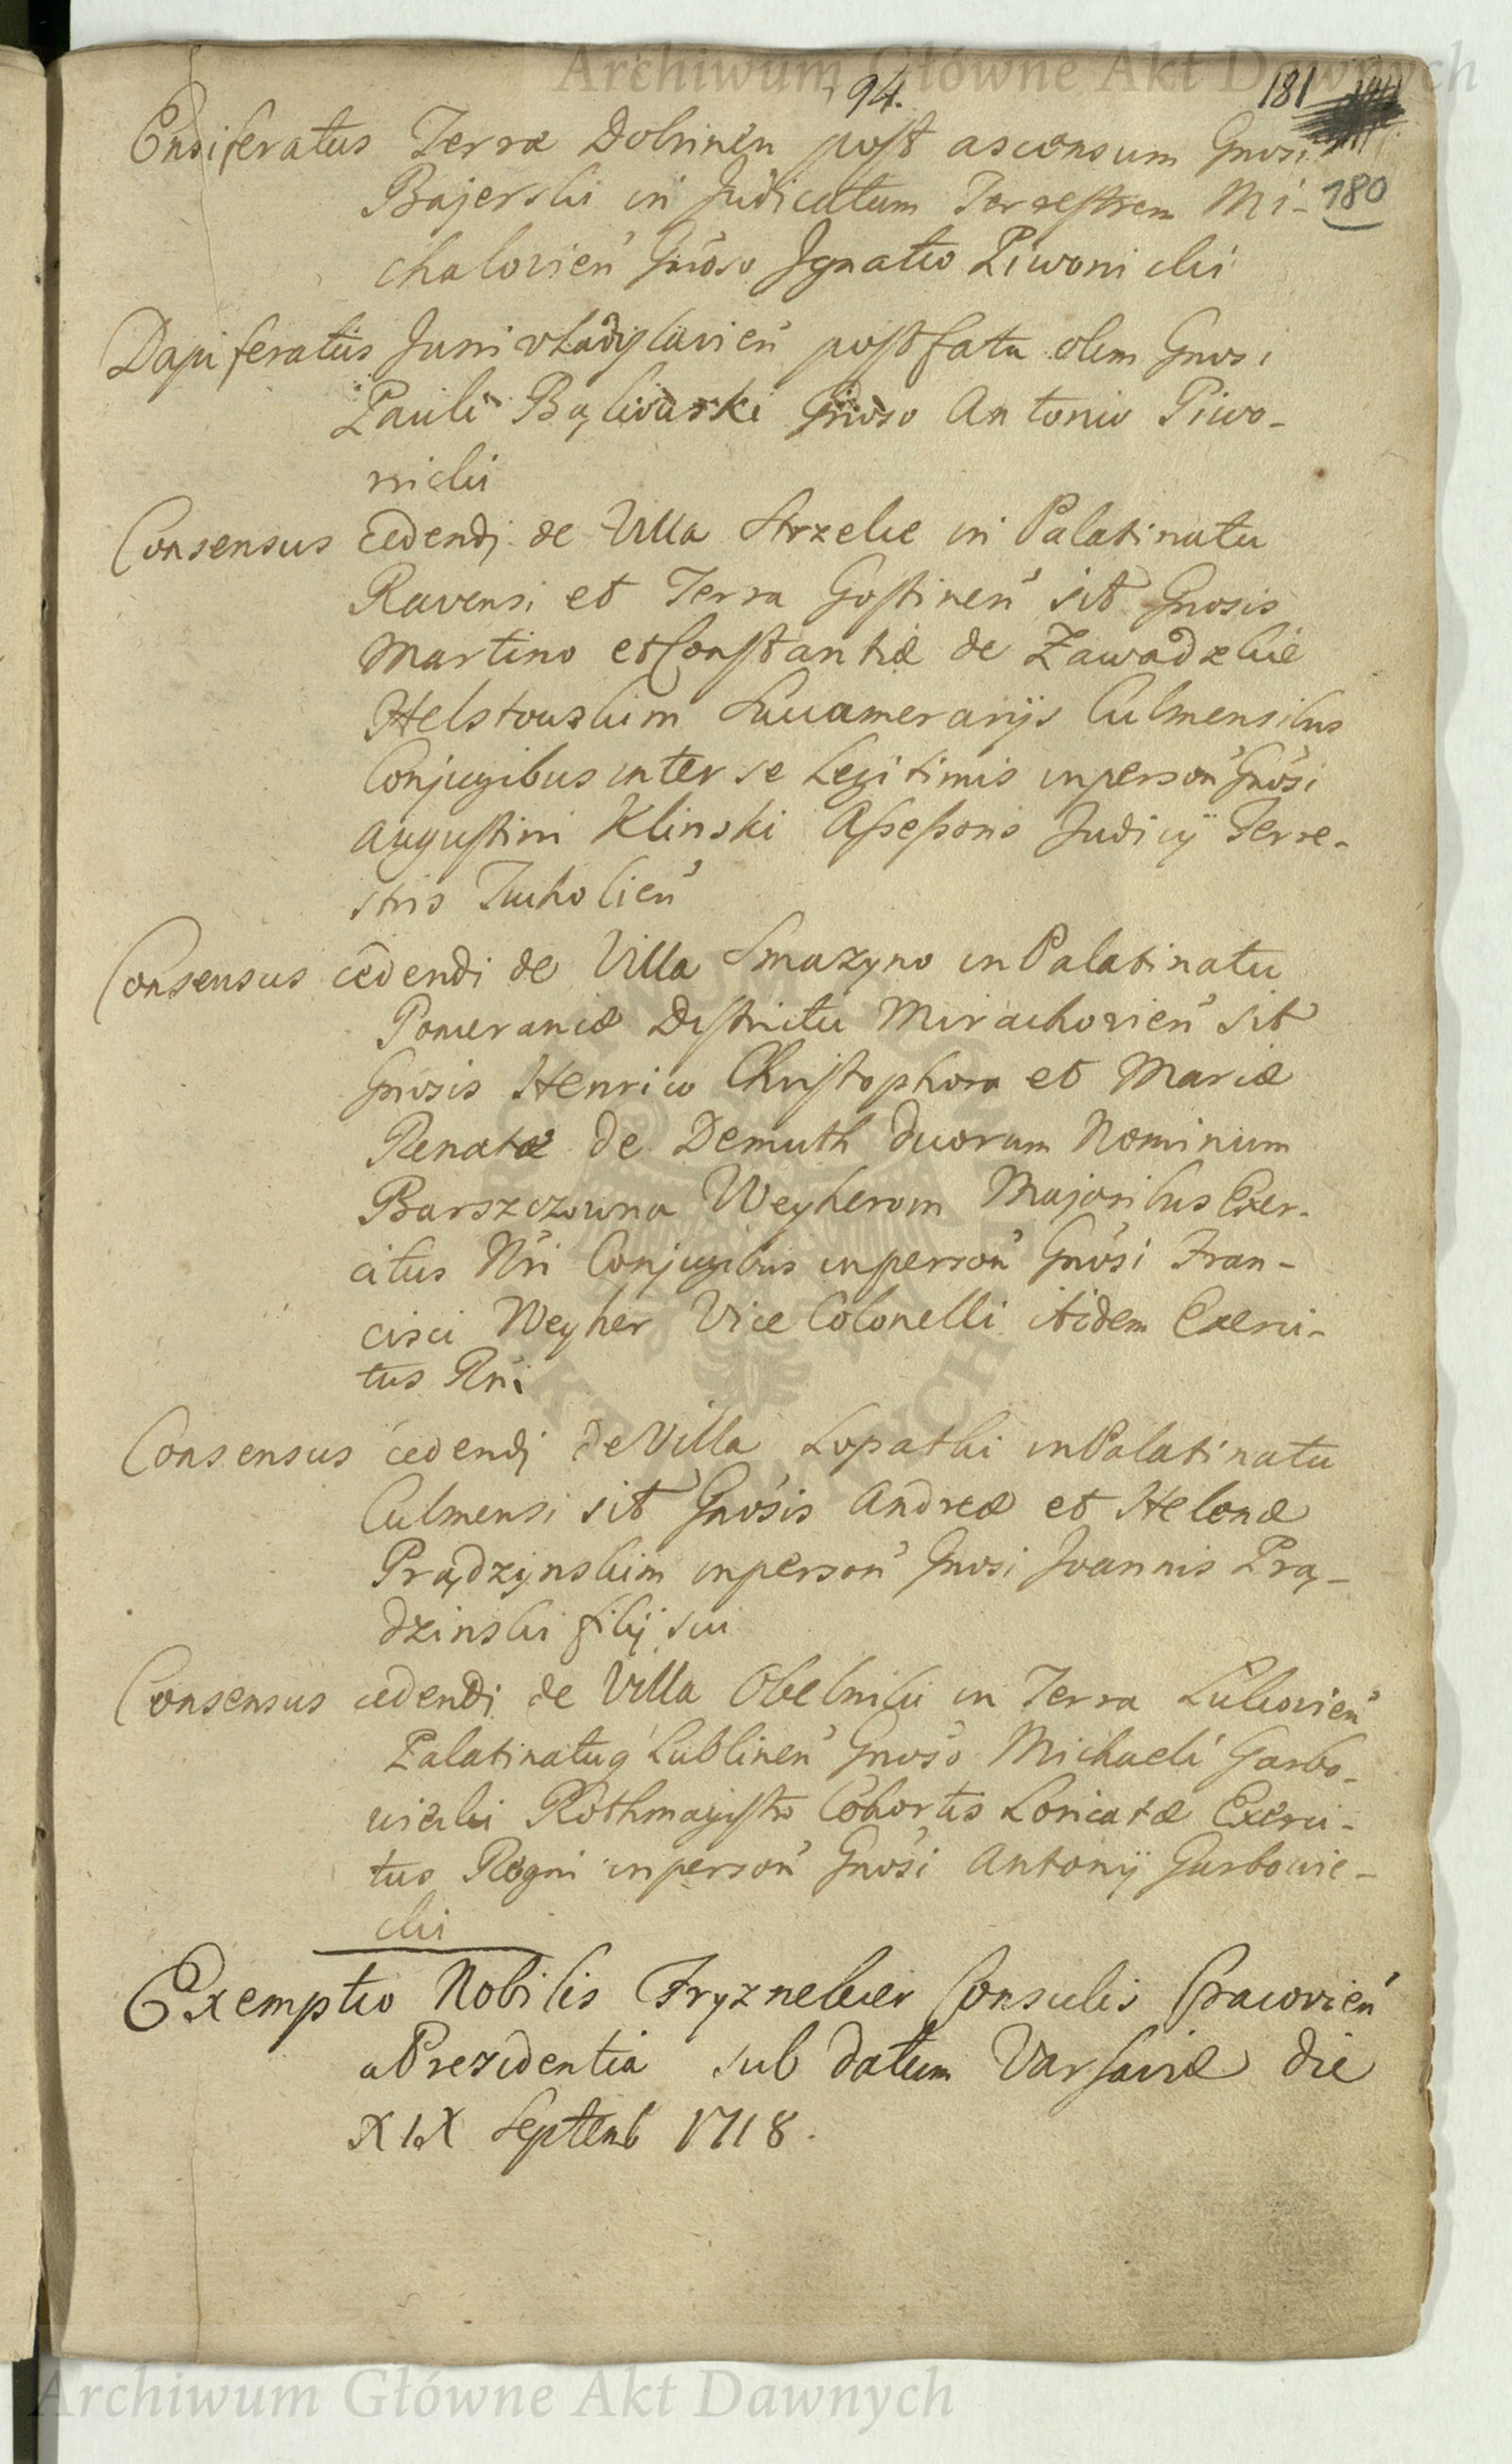 Archiwum Główne Akt Dawnych
94.
181
Ensiferatus Terræ Dobrinen post ascensum Gnosi
Bajerski in Judicatum Terrestrem Mi-
180
chalovien Gnoso Ignatio Piwonicki
Dapiferatus Junivladislavien post fata olim Gnosi
Pauli Bąkowski Gnoso Antonio Piwo-
nicki
Consensus cedendi de Villa Strzelce in Palatinatu
Ravensi et Terra Gostinen sit Gnosis
Martino et Constantiæ de Zawadzkie
Helstowskim Succamerarijs Culmensibus
Conjugibus inter se Legitimis in person Gnosi
Augustini Klinski Assessoris Judicij Terre-
stris Tucholien
Consensus cedendi de Villa Smazyno in Palatinatu
Pomeraniæ Districtu Mirachovien sit
Gnosis Henrico Christophoro et Mariæ
Renatæ de Demuth duorum Nominum
Barszczowna Weyherom Majoribus Exer-
citus Nri Conjugibus in person Gnosi Fran-
cisci Weyher Vice Colonelli itidem Exerci-
tus Rni
Consensus cedendi de Villa Lopatki in Palatinatu
Culmensi sit Gnosis Andreæ et Helenæ
Prądzynskim in person Gnosi Joannis Prą-
dzinski filij sui
Consensus cedendi de Villa Obelniki in Terra Lukovien
Palatinatuq Lublinen Gnoso Michaeli Garbo-
wiecki Rothmagistro Cohortis Loricatæ Exerci-
tus Regni in person Gnosi Antonij Garbowie-
cki
Exemptio Nobilis Fryznekier Consulis Cracovien
a Prezidentia sub datum Varsaviæ die
XIX Septemb 1718.
Archiwum Główne Akt Dawnych